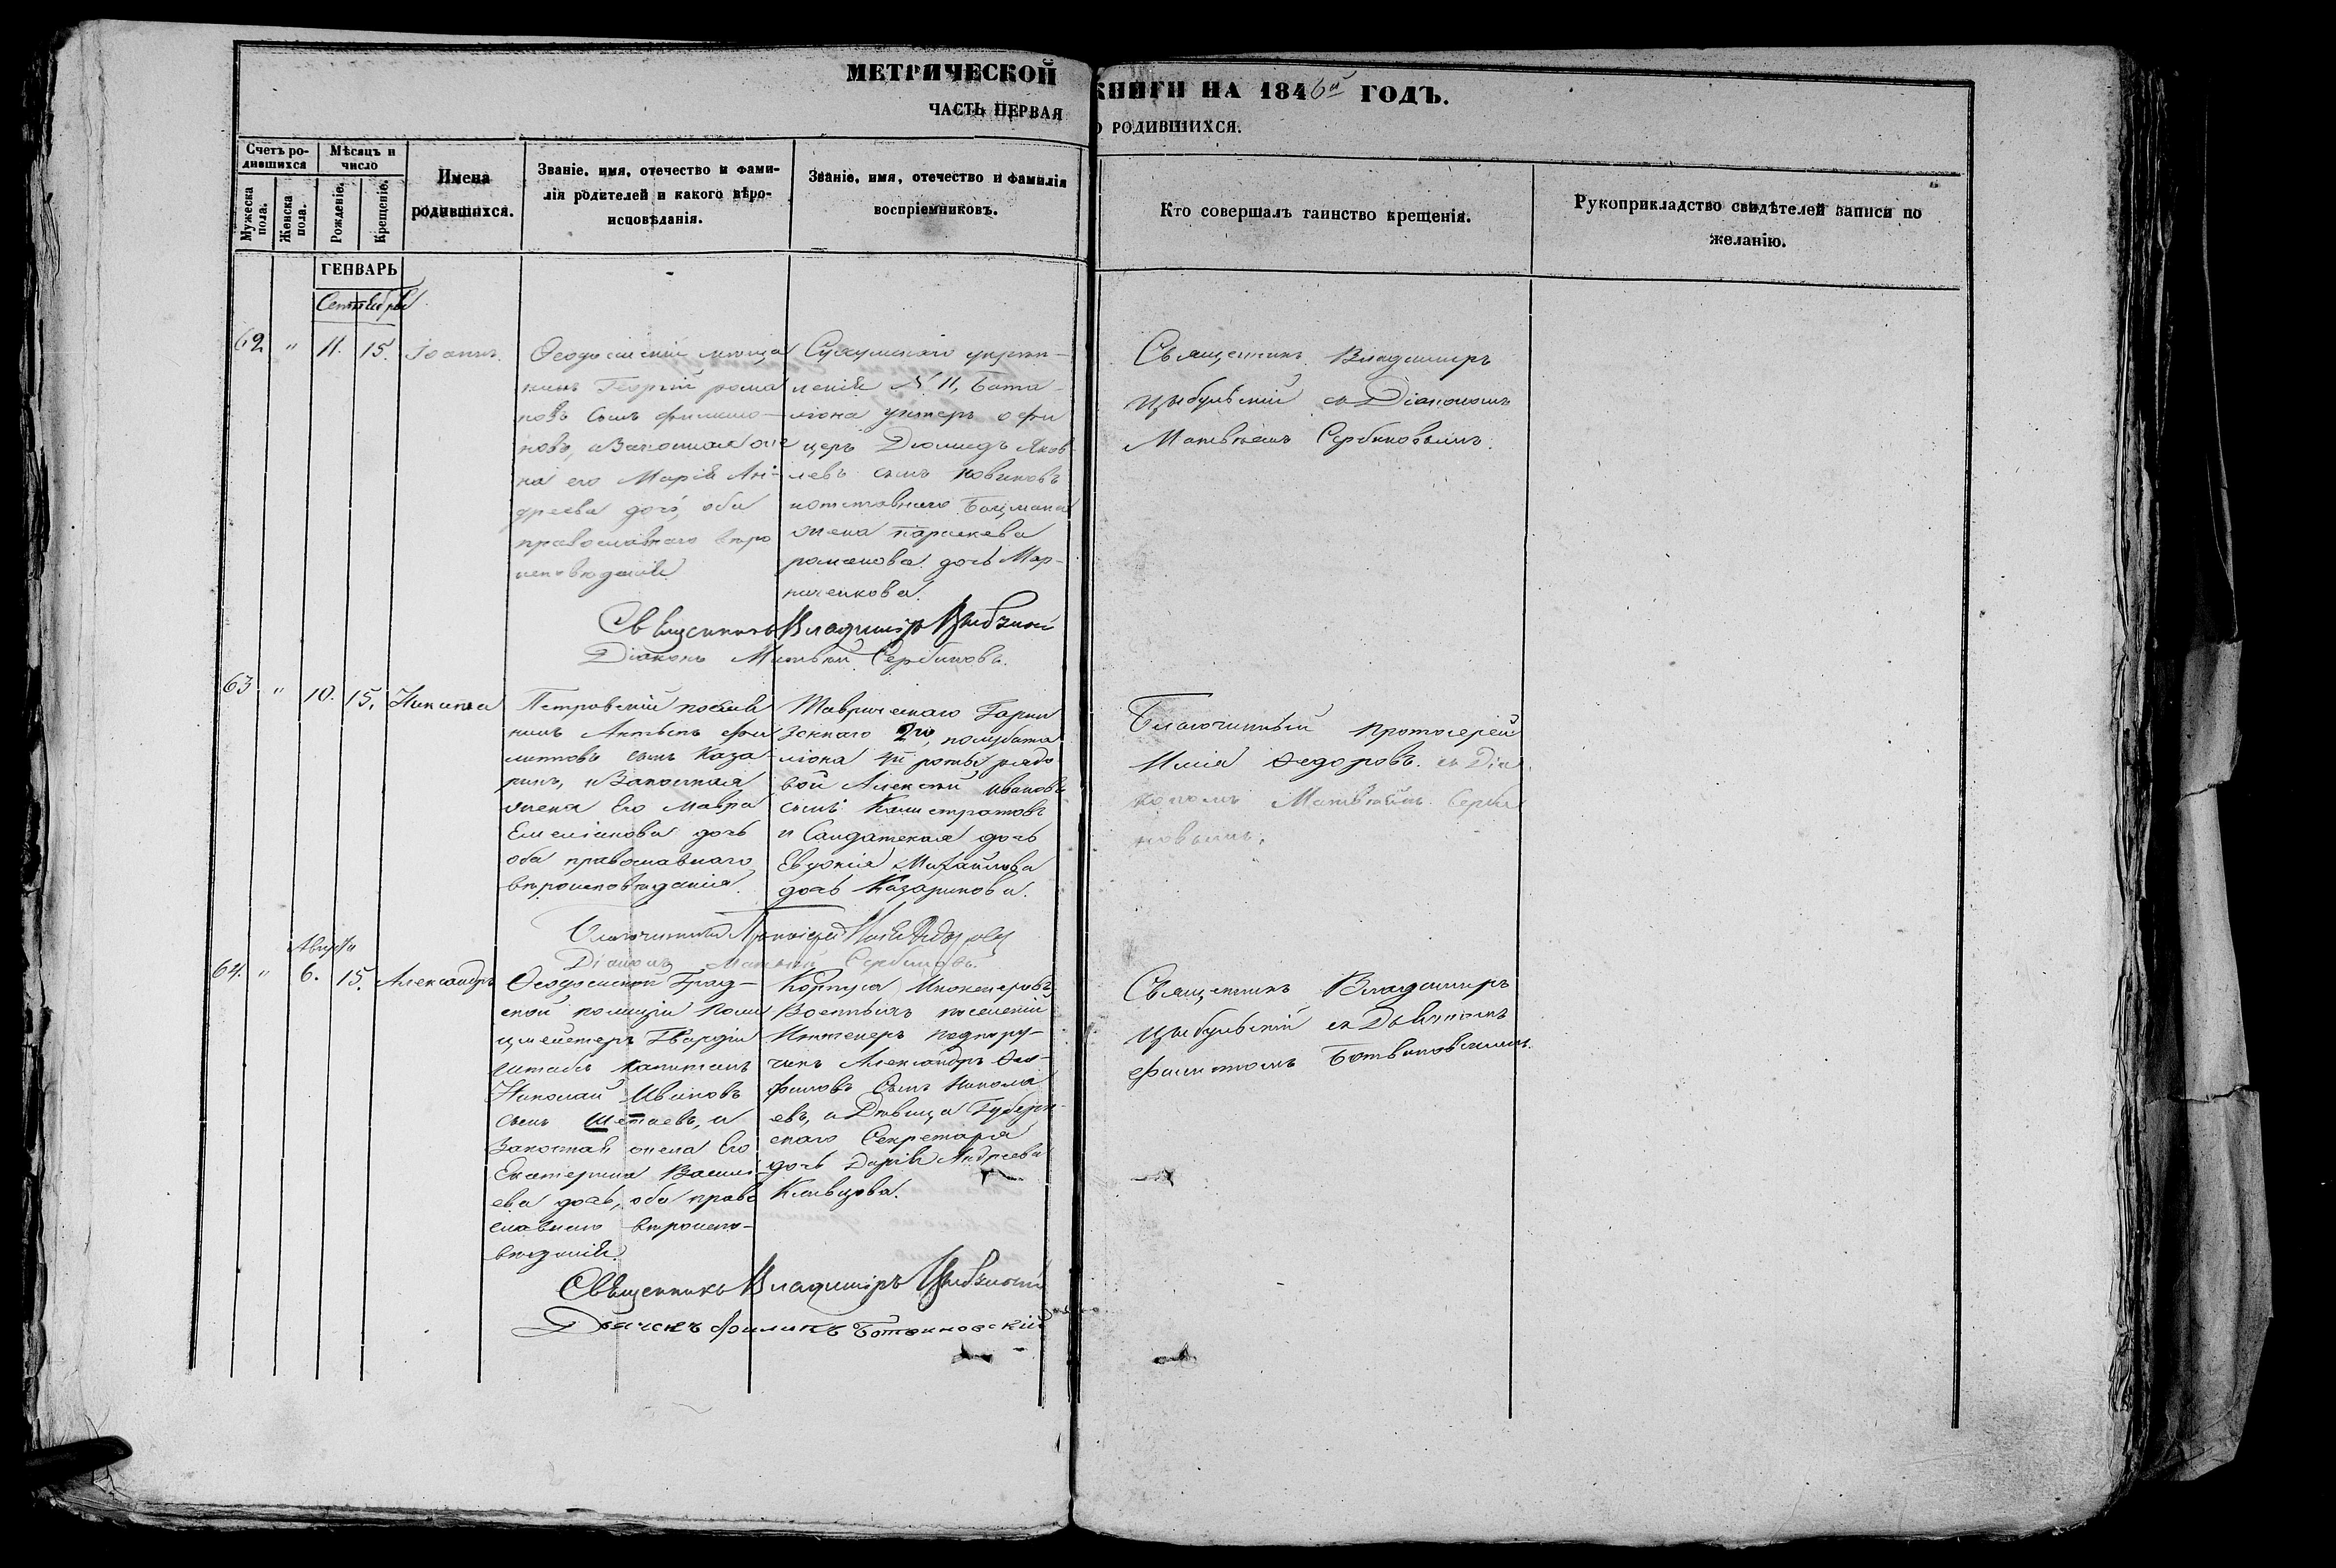 МЕТРИЧЕСКОЙ КНИГИ НА 1846й ГОДЪ.
ЧАСТЬ ПЕРВАЯ О РОДИВШИХСЯ.
Счетъ ро-
дившихся
Мужеска пола.
Женска пола.
Мѣсяцъ и
число
Рожденіе.
Крещеніе.
Имена
родившихся.
Званіе, имя, отечество и фами-
лія родителей и какого вѣро-
исповѣданія.
Званіе, имя, отечество и фамилія
воспріемниковъ.
Кто совершалъ таинство крещенія.
Рукоприкладство свидѣтелей записи по
желанію.
ГЕНВАРЬ
Сентябрь
62
"
11.
15.
Іоаннъ.
Ѳеодосійскій мѣща
нинъ Георгій рома
новъ сынъ филимо-
новъ, и Законная же
на его Марія Ан-
дреева дочь, оба
православнаго вѣро
исповѣданія
укрѣп-
ленія № 11, Бата-
ліона унтеръ офи
церъ Діомидъ Яков
левъ сынъ Новиковъ
и отставнаго Боцмана
жена параскева
романова дочь Мар-
ниченкова.
Священникъ Владиміръ
Цыбульскій съ Діакономъ
Матвѣемъ Сербиновымъ.
Священникъ Владиміръ Цыбульскій
Діаконъ Матвѣй Сербиновъ.
63
"
10.
15.
Никита
Петровскій поселя
нинъ Антипъ фи
липповъ сынъ Каза-
ринъ, и Законная
жена Его Мавра
Емеліанова дочь
оба православнаго
вѣроисповѣданія.
Таврическаго Гарни
зоннаго 2го, полубата
ліона роты рядо
вой Алексѣй Ивановъ
сынъ Калистратовъ
и Салдатская дочь
Евдокія Михайлова
дочь Казаринова.
Благочинный протоіерей
Илія Ѳедоровъ съ Діа
кономъ Матвѣемъ Серби
новымъ.
Благочинный Протоіерей Илія Ѳедоровъ
Діаконъ Матвѣй Сербиновъ.
Августа
64.
"
6.
15.
Александръ
Ѳеодосійской Град-
ской полиціи Поли
цмейстеръ Гвардіи
Штабсъ капитанъ
Николай Ивановъ
сынъ и
Законная жена Его
Екатерина Василі
ева дочь, оба право
славнаго вѣроиспо-
вѣданія.
Корпуса Инженеровъ
Военныхъ поселеній
Инженеръ подпору-
чикъ Александръ Ѳео-
филовъ сынъ Никола
евъ, и Дѣвица Губерн-
скаго Секретаря
дочь Дарія Андреева
Клевцова.
Священникъ Владиміръ
Цыбульскій съ Дьячкомъ
Филиппомъ Ботвиновскимъ.
Священникъ Владиміръ Цыбульскій
Дьячекъ Филипъ Ботвиновскій